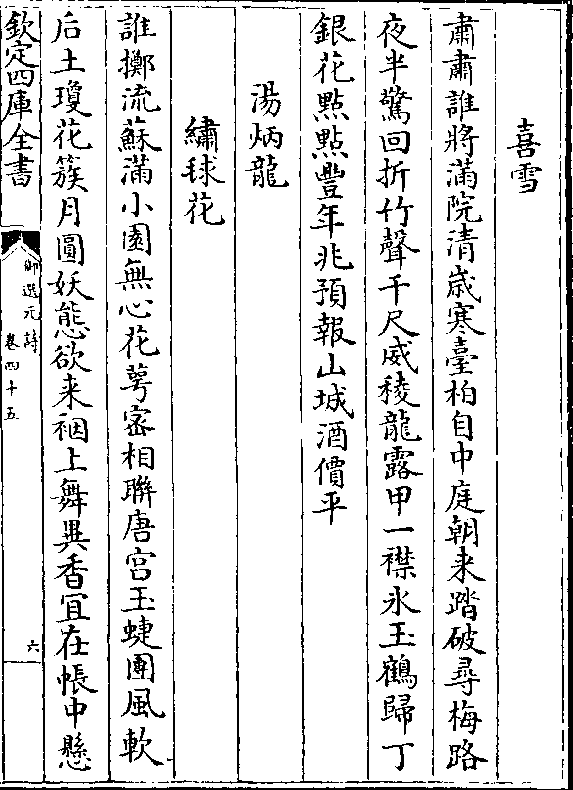 喜雪
肅肅誰將滿院清歲寒臺柏自中庭朝来踏破尋梅路
夜半驚回折竹聲千尺威稜龍露甲一襟氷玉鶴歸丁
銀花點點豐年兆預報山城酒價平
湯炳龍
繡球花
誰擲流蘇滿小園無心花萼密相聨唐宫玉蜨團風軟
后土瓊花簇月圓妖態欲来裀上舞異香宜在帳中懸
欽定四庫全書
御選元詩
卷四十五
六